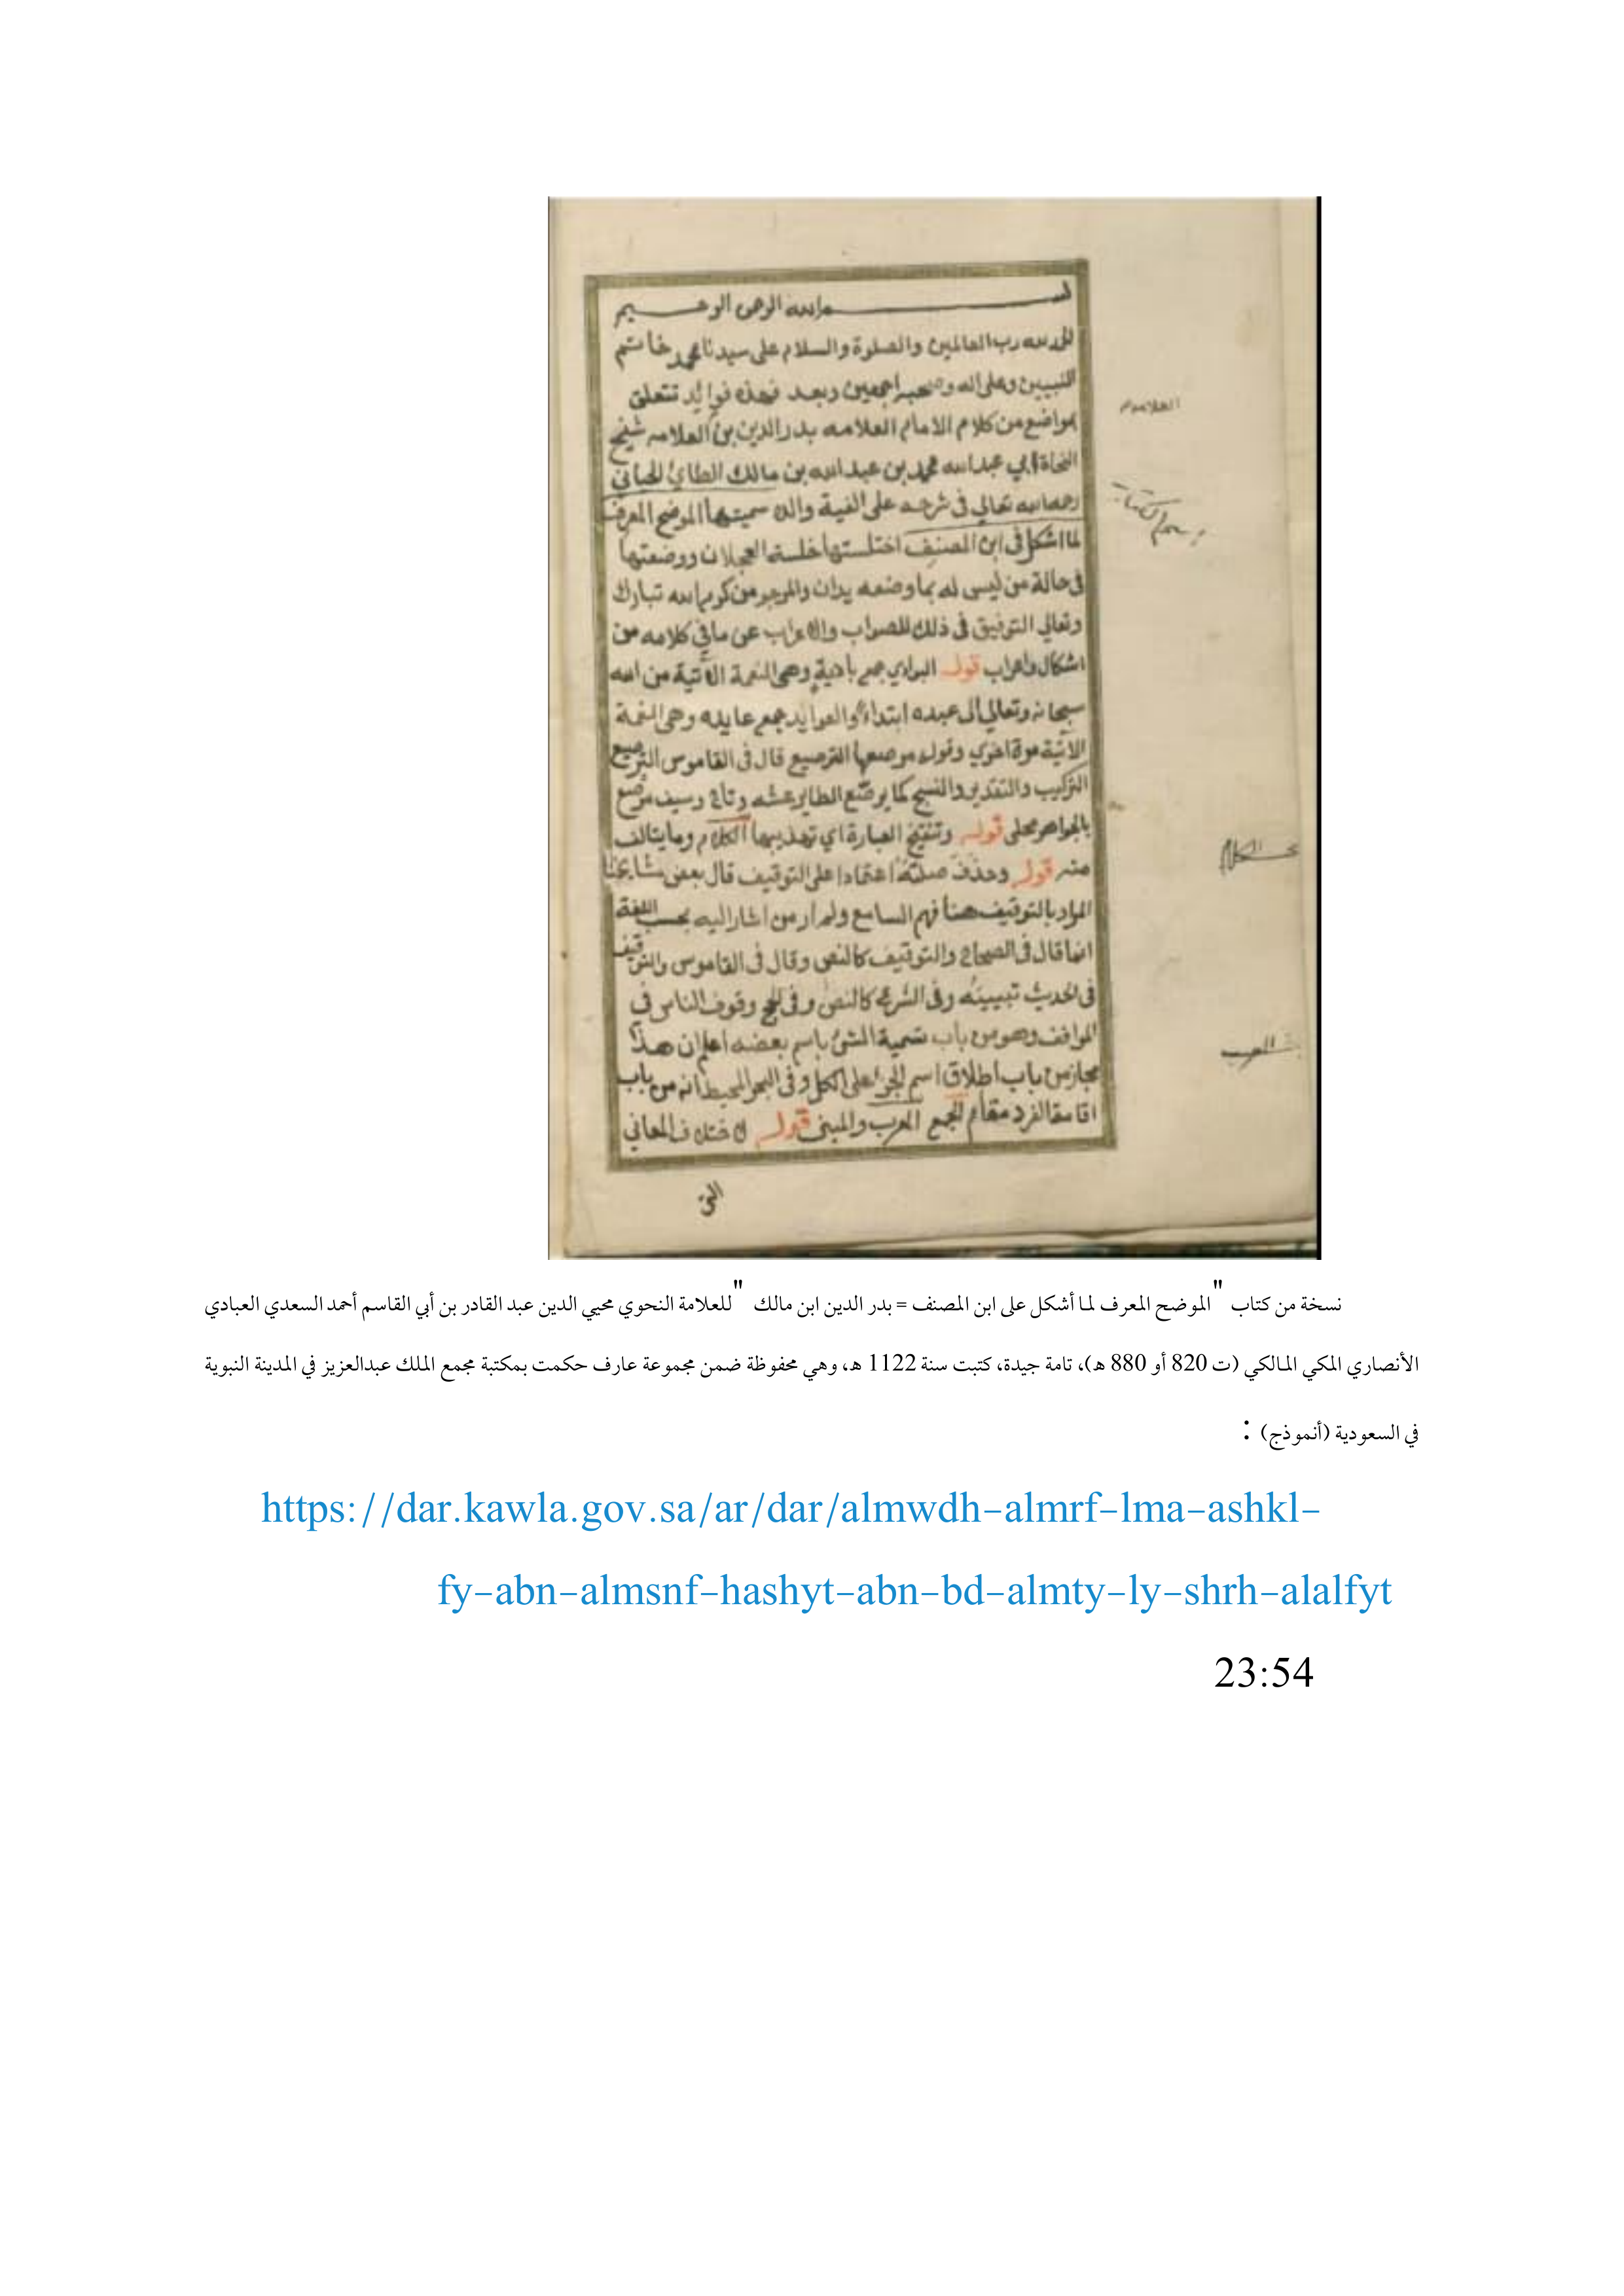 بسم الله الرحمن الرحيم
الحمد لله رب العالمين والصلوة والسلام على سيدنا محمد خاتم
النبيين وعلى اله وصحبه اجمعين وبعد فهذه فوائد تتعلق
بمواضع من كلام الامام العلامه بدر الدين بن العلامه شيخ
النحاة ابي عبد الله محمد بن عبد الله بن مالك الطائي الجياني
رحمه الله تعالي في شرحه على الفية والده سميتها الموضح المعرف
لما اشكل في ابن المصنف اختلستها خلسة العجلان ووضعتها
في حالة من ليس له بما وضعه يدان والمرجو من كرم الله تبارك
وتعالي التوفيق في ذلك للصواب والاعراب عن ما في كلامه من
اشكال واعراب قوله البوادي جمع بادية وهي النعمة الآتية من الله
سبحانه وتعالي الى عبده ابتداء والعوايد جمع عايده وهي النعمة
الآتية مرة اخري وقوله مرصعها الترصيع قال في القاموس الترصيع
التركيب والتقدير والنسج كما يرصّع الطاير عشه وتاج وسيف مرصع
بالجواهر محلى قوله وتنقيح العبارة اي تهذيبها الكلام وما يتالف
منه قوله وحذف صلته اعتمادا على التوقيف قال بعض مشايخنا
المراد بالتوقيف هنا فهم السامع ولم ار من اشار اليه بحسب اللغة
انما قال في الصحاح والتوقيف كالنص وقال في القاموس والتوقيف
في الحديث تبيينه وفي الشرع كالنص وفي الحج وقوف الناس في
المواقف وهو من باب تسمية الشئ باسم بعضه اعلم ان هذا
مجاز من باب اطلاق اسم الجزء على الكل وفي البحر المحيط انه من باب
اقامة الفرد مقام الجمع المعرب والمبنى قوله لاختلاف المعاني
التي
العلامه
اسم الكتاب
الكلام
المعرب
نسخة من كتاب "الموضح المعرف لما أشكل على ابن المصنف = بدر الدين ابن مالك "للعلامة النحوي محيي الدين عبد القادر بن أبي القاسم أحمد السعدي العبادي
الأنصاري المكي المالكي (ت 820 أو 880 هـ)، تامة جيدة، كتبت سنة 1122 هـ، وهي محفوظة ضمن مجموعة عارف حكمت بمكتبة مجمع الملك عبدالعزيز في المدينة النبوية
في السعودية (أنموذج) :
https://dar.kawla.gov.sa/ar/dar/almwdh-almrf-lma-ashkl-
fy-abn-almsnf-hashyt-abn-bd-almty-ly-shrh-alalfyt
23:54